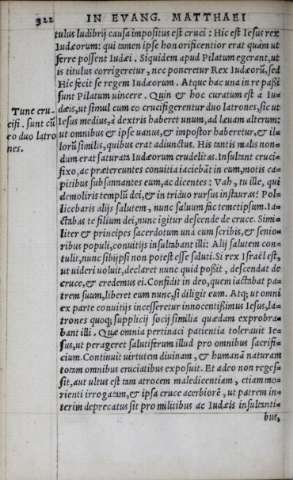 322 IN EVANG. MATTHAEI
tulus ludibrij causa impositus est cruci : Hic est Iesus rex
Iudæorum: qui tamen ipse honorificentior erat quàm ut
ferre possent Iudæi. Siquidem apud Pilatum egerant, ut
is titulus corrigeretur, nec poneretur Rex Iudæorũ, sed
Hic fecit se regem Iudæorum. Atque hac una in re passi
sunt Pilatum uincere. Quin & hoc curatum est à Iu-
Tunc cru- dæis, ut simul cum eo crucifigerentur duo latrones, sic ut
cifi. sunt cũ Iesus medius, à dextris haberet unum, ad læuam alterum:
eo duo latro ut omnibus & ipse uanus, & impostor haberetur, & il-
nes. lorũ similis, quibus erat adiunctus. His tantis malis non-
dum erat saturata Iudæorum crudelitas. Insultant cruci-
fixo, ac prætereuntes conuitia iaciebãt in eum, motis ca-
pitibus subsannantes eum, ac dicentes: Vah, tu ille, qui
demoliris templũ dei, & in triduo rursus instauras: Pol-
licebaris alijs salutem, nunc saluum fac temetipsum. Ia-
ctabas te filium dei, nunc igitur descende de cruce. Simi-
liter & principes sacerdotum unà cum scribis, & senio-
ribus populi, conuitijs insultabant illi: Alijs salutem con-
tulit, nunc sibijpsi non potest esse saluti. Si rex Israël est,
ut uideri uoluit, declaret nunc quid possit, descendat de
cruce, & credemus ei. Confidit in deo, quem iactabat pa-
trem suum, liberet eum nunc, si diligit eum. Atq; ut omni
ex parte conuitijs incesseretur innocentissimus Iesus, la-
trones quoq; supplicij socij similia quædam exprobra-
bant illi. Quæ omnia pertinaci patientia tolerauit Ie-
sus, ut perageret salutiferum illud pro omnibus sacrifi-
cium. Continuit uirtutem diuinam, & humanã naturam
totam omnibus cruciatibus exposuit. Et adeo non reges-
sit, aut ultus est tam atrocem maledicentiam, etiammo-
rienti irrogatam, & ipsa cruce acerbiorẽ, ut patrem in-
terim deprecatus sit pro militibus ac Iudæis insultanti-
bus,